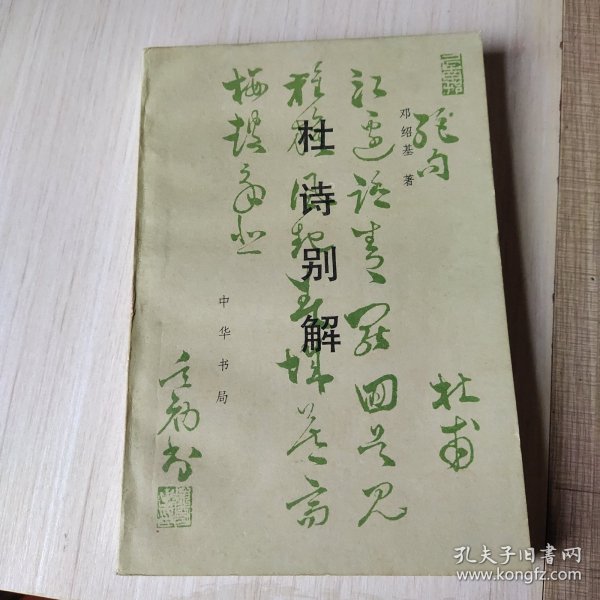 绝句
杜甫
江邊踏青罷回首見
旌旗風起春城暮高
樓鼓角悲
邓绍基 著
杜诗别解
中华书局
孔夫子旧书网
www.kongfz.com